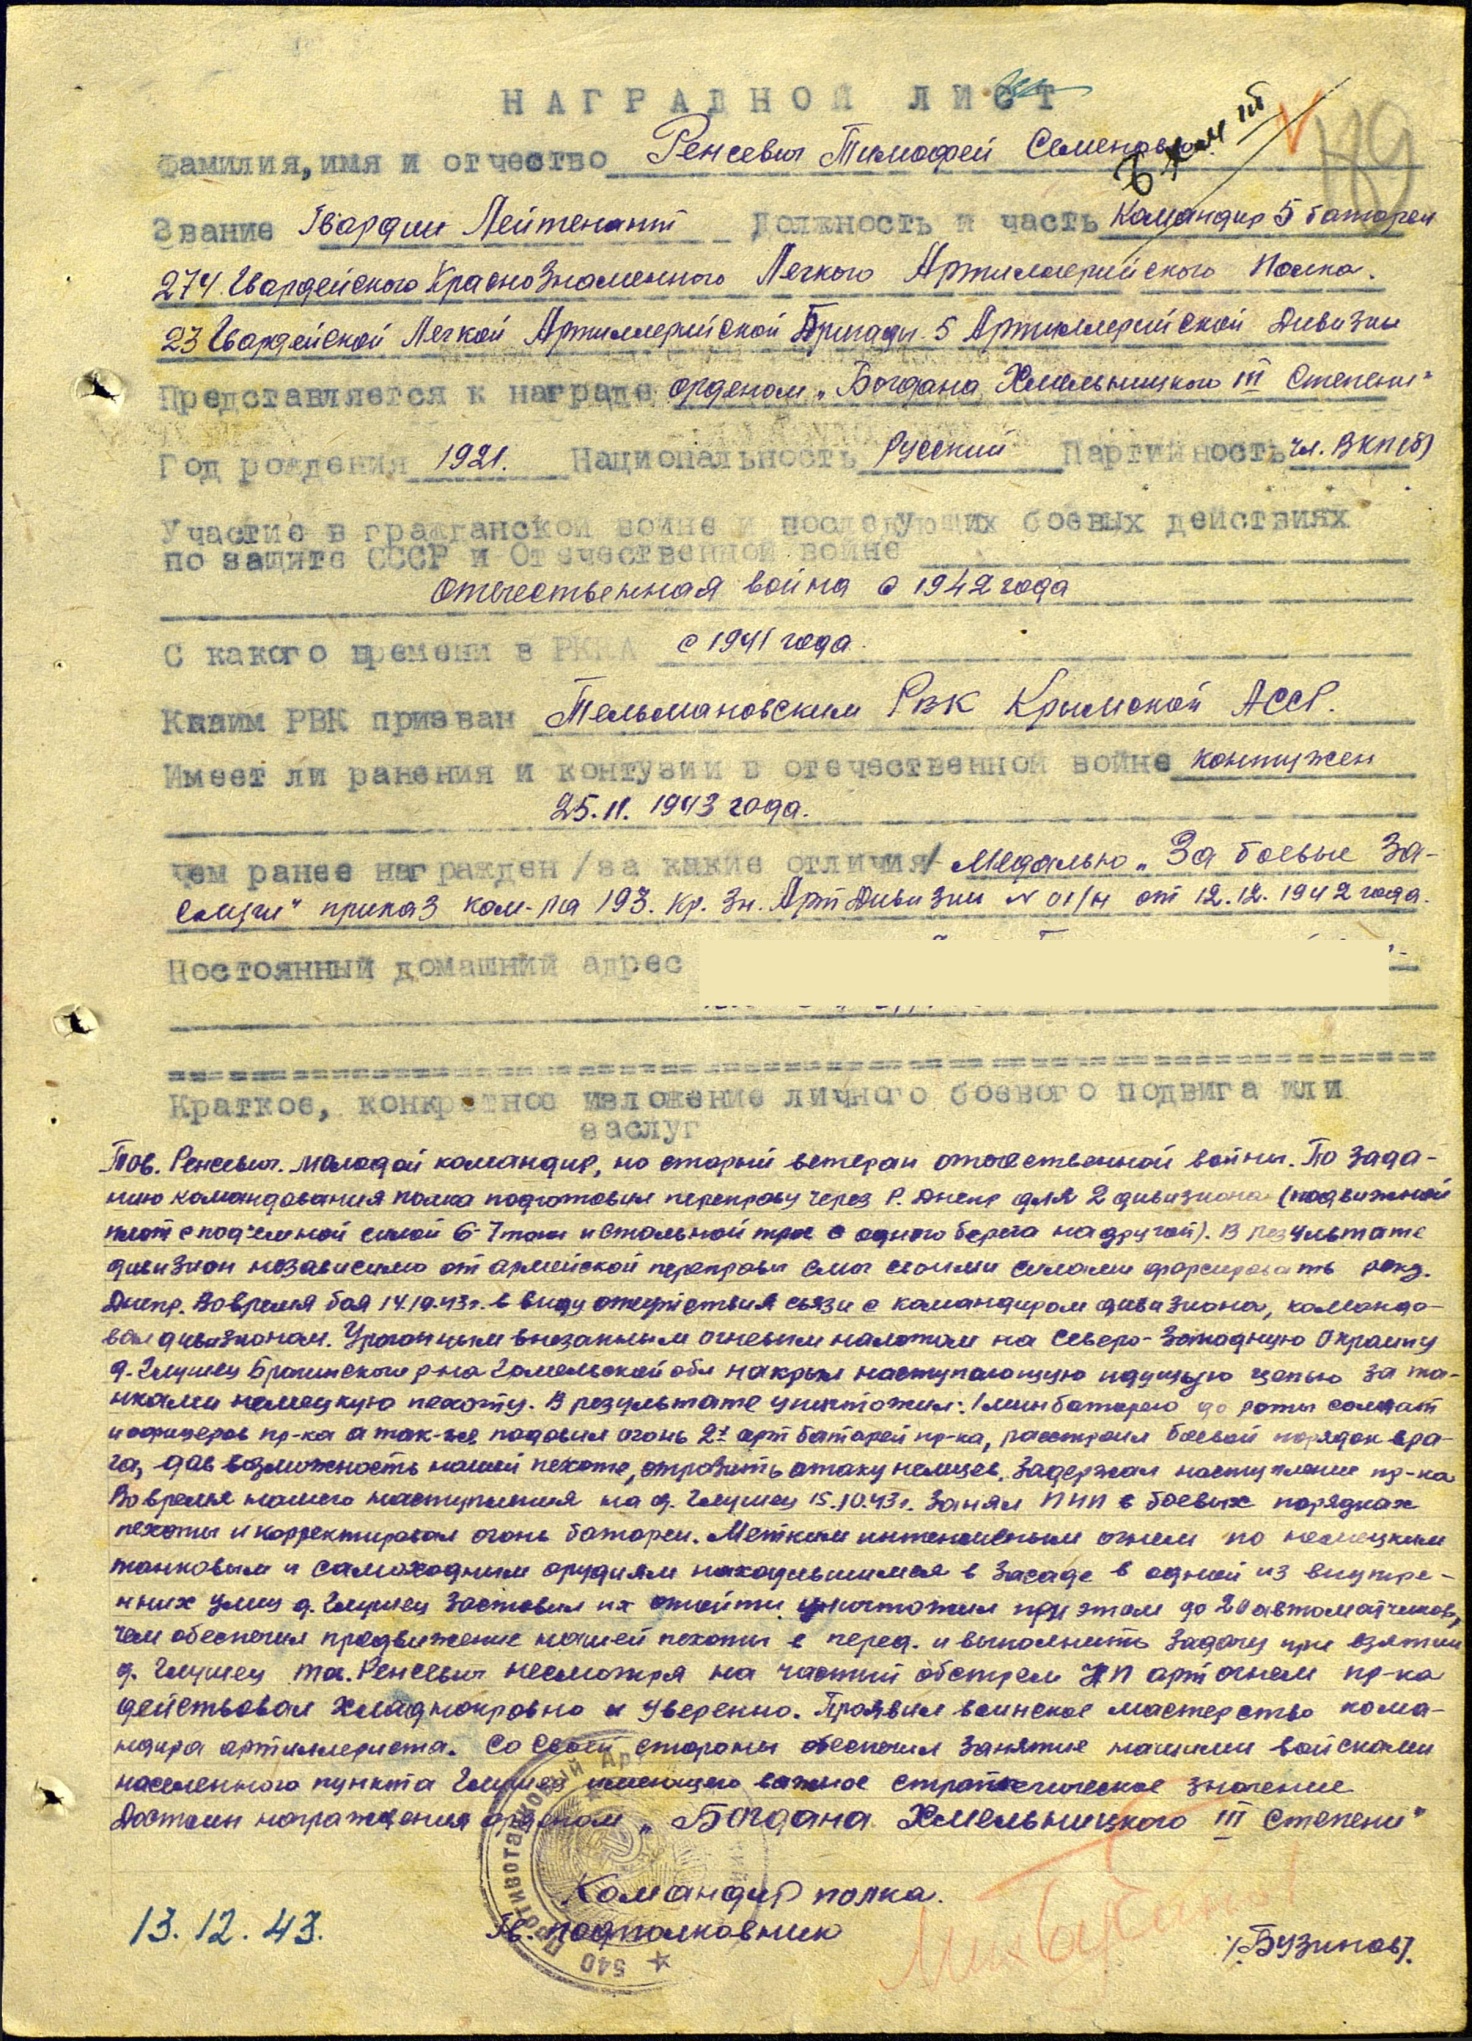 НАГРАДНОЙ ЛИСТ
Фамилия, имя и отчество Ренсевич Тимофей Семенович
Звание Гвардии Лейтенант Должность и часть Командир 5 батареи
274 Гвардейского Краснознаменного Легкого Артиллерийского Полка.
23 Гвардейской Легкой Артиллерийской Бригады 5 Артиллерийской Дивизии
Представляется к награде орденом „Богдана Хмельницкого III Степени"
Год рождения 1921. Национальность Русский Партийность чл. ВКП(б)
Участие в гражданской войне и последующих боевых действиях
по защите СССР и Отечественной войне
Отечественная война с 1942 года
С какого времени в РККА с 1941 года.
Каким РВК призван Тельмановским РВК Крымской АССР.
Имеет ли ранения и контузии в отечественной войне контужен
25.11.1943 года.
чем ранее награжден /за какие отличия/ Медалью „За боевые За-
слуги" приказ ком-ра 193. Кр. Зн. Арт Дивизии N 01/н от 12.12.1942 года.
Постоянный домашний адрес
Краткое, конкретное изложение личного боевого подвига или
заслуг
Тов. Ренсевич. молодой командир, но старый ветеран отечественной войны. По зада-
нию командования полка подготовил переправу через р. Днепр для 2 дивизиона (подвижной
плот с под'емной силой 6-7 тонн и стальной трос с одного берега на другой). В результате
дивизион независимо от армейской переправы смог своими силами форсировать реку.
Днепр. Во время боя 14.10.43г. в виду отсутствия связи с командиром дивизиона, командо-
вал дивизионом. Ураганным внезапным огневым налетом на Северо-Западную окраину
д. Глушец Брагинского р-на Гомельской обл накрыл наступающую идущую цепью за та-
нками немецкую пехоту. В результате уничтожил: 1 минбатарею до роты солдат
и офицеров пр-ка а так-же подавил огонь 2х арт батарей пр-ка, расстроил боевой порядок вра-
га, дав возможность нашей пехоте, отразить атаку немцев. Задержал наступление пр-ка
Во время нашего наступления на д. Глушец 15.10.43г. Занял ПНП в боевых порядках
пехоты и корректировал огонь батареи. Метким интенсивным огнем по немецким
танковым и самоходным орудиям находившимся в засаде в одной из внутре-
нних улиц д. Глушец заставил их отойти уничтожил при этом до 20 автоматчиков,
чем обеспечил продвижение нашей пехоты в перед. и выполнить задачу при взятии
д. Глушец тов. Ренсевич несмотря на частый обстрел НП арт огнем пр-ка
действовал хладнокровно и уверенно. Проявил воинское мастерство кома-
ндира артиллериста. Со своей стороны обеспечил занятие нашими войсками
населенного пункта Глушец имеющего важное стратегическое значение
Достоин награждения орденом „Богдана Хмельницкого III Степени"
Командир полка.
Гв. подполковник
/Бузинов/.
13.12.43.
540 Противотанковый Ар